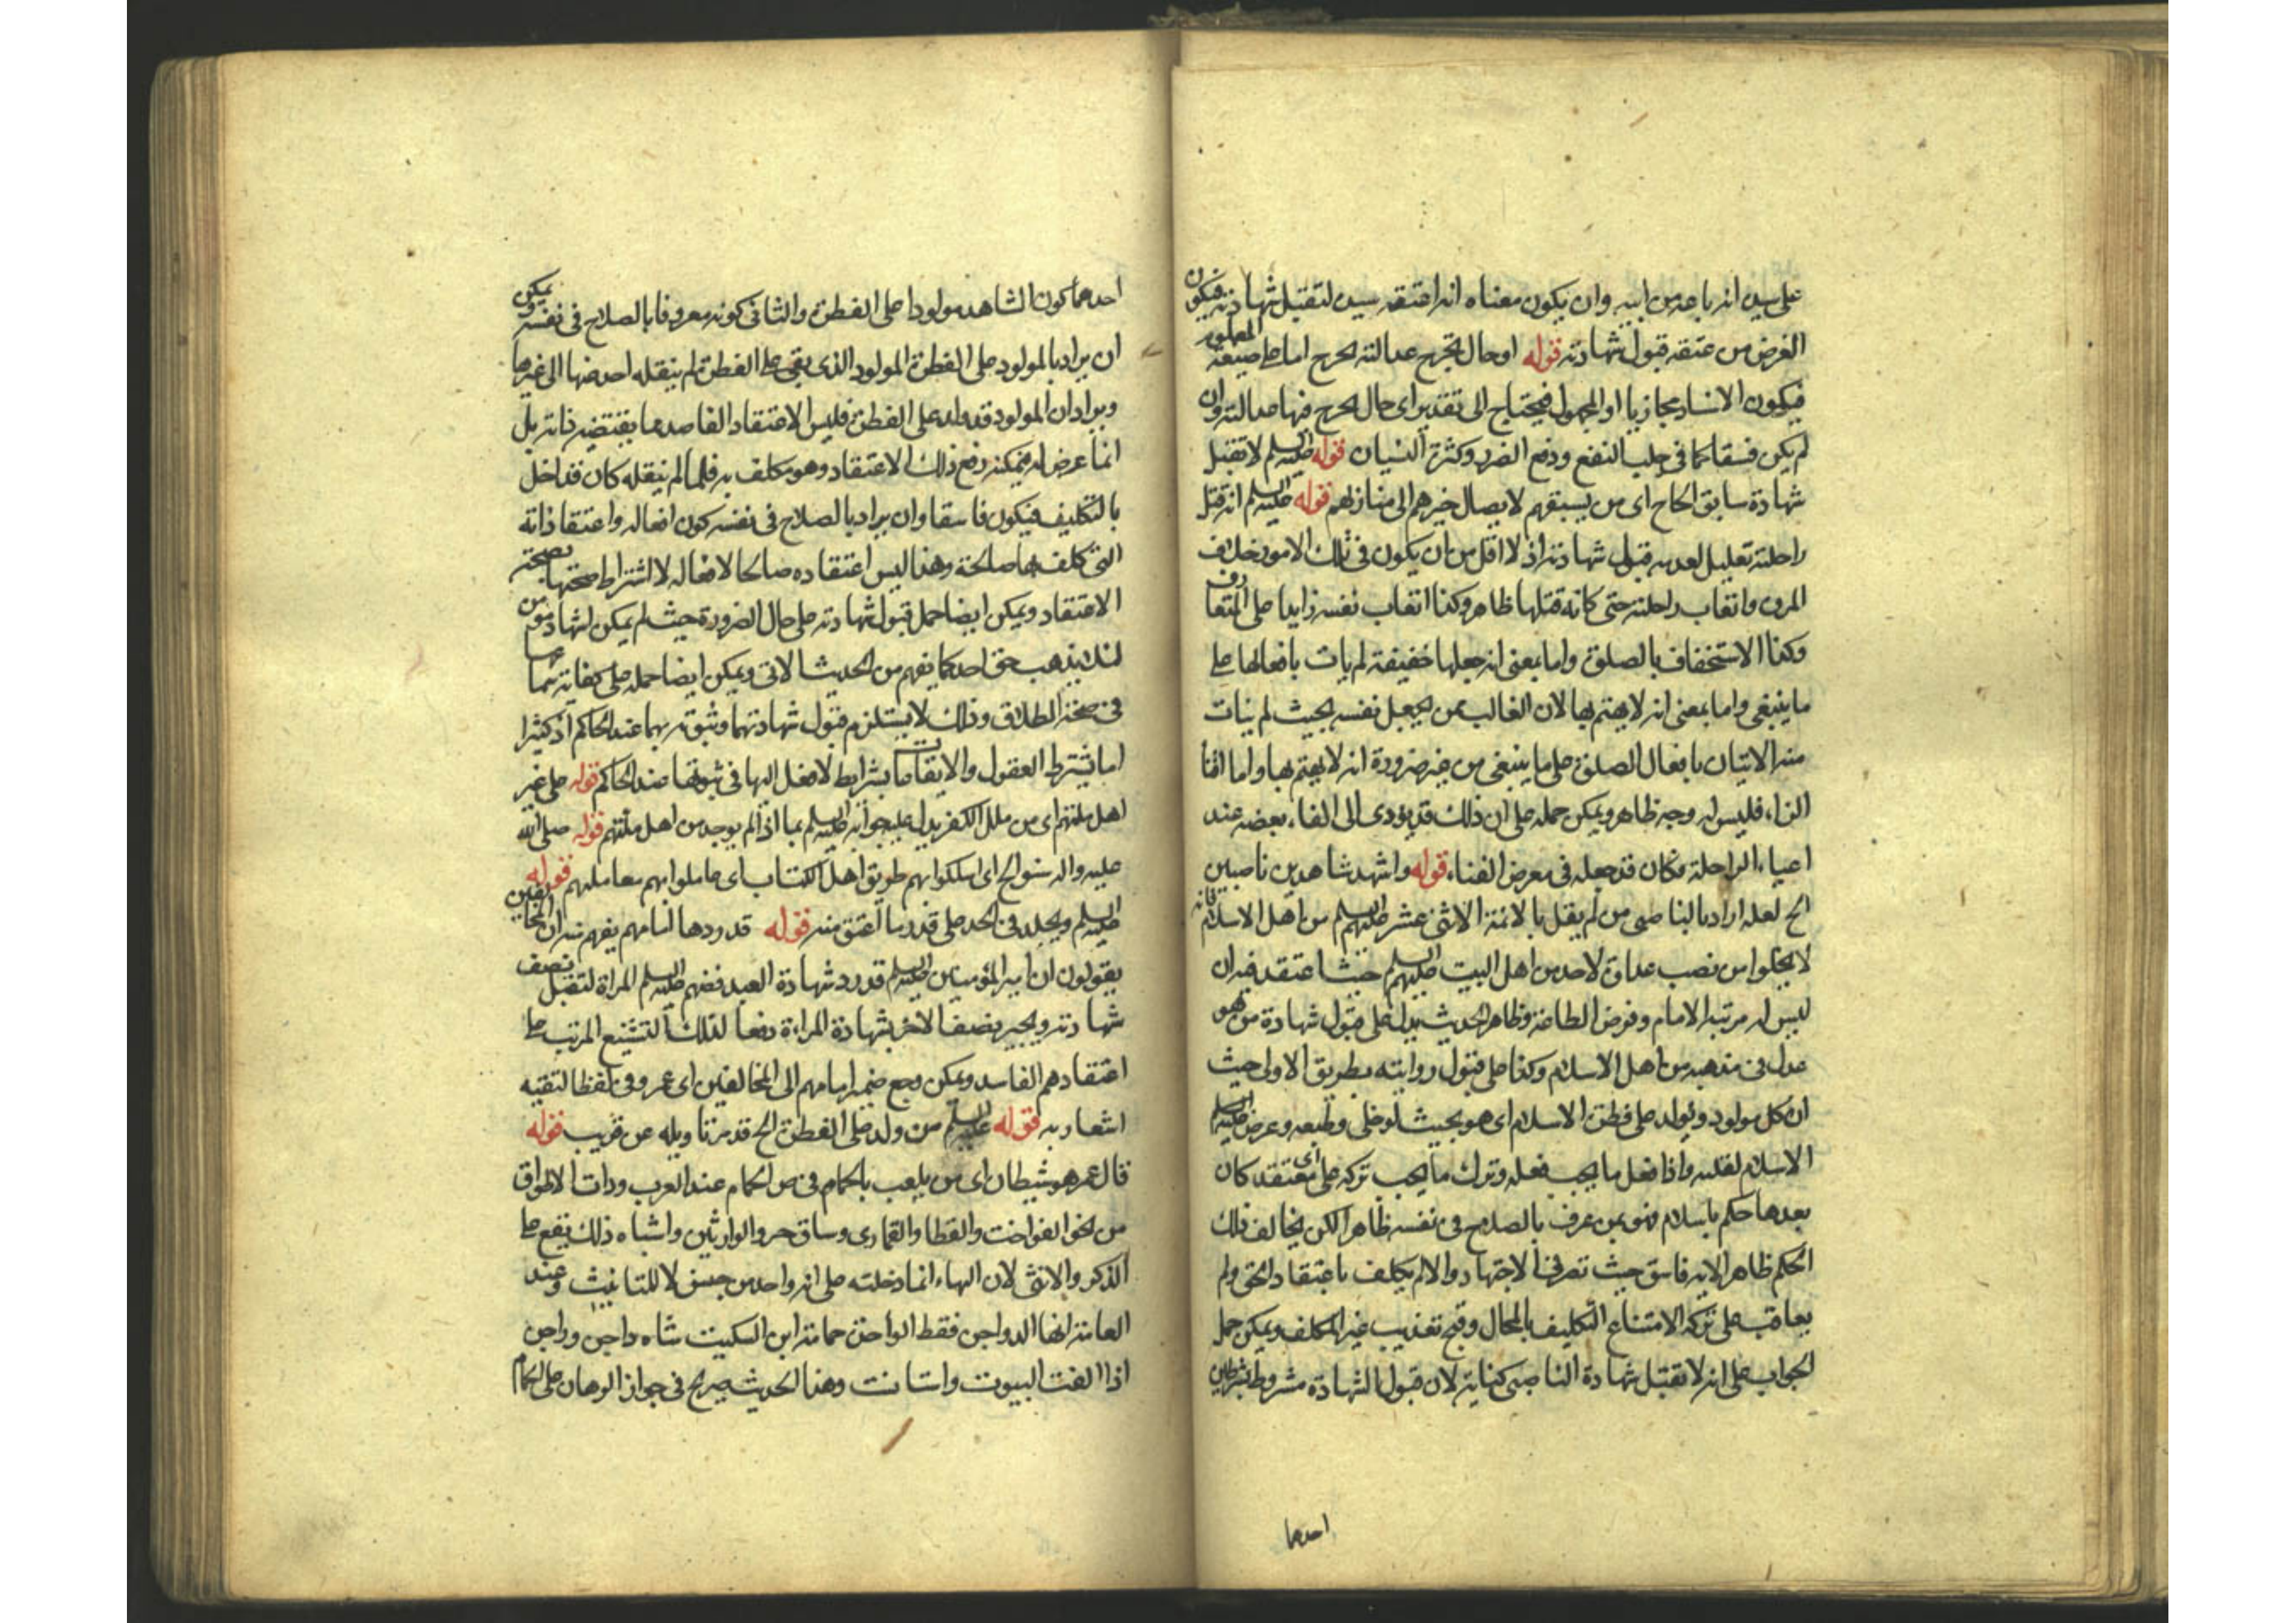 على سيده انه باعه من ابيه وان يكون معناه انه اعتقه سيده لتقبل شهادته فيكون
الغرض من عتقه قبول شهادته قوله او حال تجرح عدالته الجرح اما على صيغة المعلوم
فيكون الاسناد مجازيا او المجهول فيحتاج الى تقدير اى حال يجرح فيها عدالته وان
لم يكن فسقا كما فى جلب النفع ودفع الضرر وكثرة النسيان قوله عليه السلم لا تقبل
شهادة سابق الحاج اى من يسبقهم لايصال خبرهم الى منازلهم قوله عليه السلم انه قتل
راحلته تعليل لعدم قبول شهادته اذ لا اقل من ان يكون فى تلك الامور خلاف
المروة واتعاب راحلته حتى كانه قتلها ظاهر وكذا اتعاب نفسه زايدا على المتعارف
وكذا الاستخفاف بالصلوة واما بمعنى انه جعلها خفيفة لم يات بافعالها على
ما ينبغى واما بمعنى انه لا يهتم بها لان الغالب ممن يجعل نفسه بحيث لم يتات
منه الاتيان بافعال الصلوة على ما ينبغى من غير ضرورة انه لا يهتم بها واما افناء
الزاد فليس له وجه ظاهر ويمكن حمله على ان ذلك قد يؤدى الى الفاء بعضه عند
اعياء الراحلة فكان قد جعله فى معرض الفناء قوله واشهد شاهدين ناصبين
الخ لعله اراد بالناصبى من لم يقل بالائمة الاثنى عشر عليهم السلم من اهل الاسلام فانه
لا يخلوا من نصب عداوة لاحد من اهل البيت عليهم السلم حيث اعتقد فيه ان
ليس له مرتبة الامام وفرض الطاعة وظاهر الحديث يدل على قبول شهادة من هو
عدل فى مذهبه من اهل الاسلام وكذا على قبول روايته بطريق الاولى حيث
ان كل مولود يولد على فطرة الاسلام اى هو بحيث لو خلى وطبعه وعرض عليه
الاسلام لقبله واذا فعل ما يجب فعله وترك ما يجب تركه على اى معتقد كان
بعد ما حكم باسلامه فهو ممن عرف بالصلاح فى نفسه ظاهرا لكن يخالف ذلك
الحكم ظاهر الاية فاسق حيث تصرف الاجتهاد والا لم يكلف باعتقاد الحق ولم
يعاقب على تركه لامتناع التكليف بالمحال وقبح تعذيب غير المكلف ويمكن حمل
الجواب على انه لا تقبل شهادة الناصبى كناية لان قبول الشهادة مشروط بشرطين
احدهما
احدهما كون الشاهد مولودا على الفطرة والثانى كونه معروفا بالصلاح فى نفسه ويمكن
ان يراد بالمولود على الفطرة المولود الذى بقى على الفطرة لم ينقله احد منها الى غيرها
ويراد ان المولود قد ولد على الفطرة فليس الاعتقاد الفاسد مما يقتضيه ذاته بل
انما عرض له فيمكنه دفع ذلك الاعتقاد وهو مكلف به فلما لم ينقله كان قد اخل
بالتكليف فيكون فاسقا وان يراد بالصلاح فى نفسه كون افعاله واعتقاداته
التى كلف بها صالحة وهذا ليس اعتقاده صالحا لافعاله لاشتراط صحتها بصحة
الاعتقاد ويمكن ايضا حمل قبول شهادته على حال الضرورة حيث لم يمكن اشهاد مؤمن
لئلا يذهب حق احد كما يفهم من الحديث الاتى ويمكن ايضا حمله على كفاية شهادتهما
فى صحة الطلاق وذلك لا يستلزم قبول شهادتهما وثبوته بهما عند الحاكم اذ كثيرا
اما يشترط العقود والايقاعات بشرايط لا مدخل لها فى ثبوتها عند الحاكم قوله على غير
اهل ملتهم اى من ملل الكفر يدل عليه جوابه عليه السلم بما اذا لم يوجد من اهل ملتهم قوله صلى الله
عليه واله سنوا بهم الخ اى اسلكوا بهم طريق اهل الكتاب اى عاملوا بهم معاملتهم قوله
عليه السلم ويجلد فى الحد على قدر ما اعتق منه قوله قد ردها امامهم يفهم منه ان المخالفين
يقولون ان امير المؤمنين عليه السلم قد رد شهادة العبد فضم عليه السلم المراة لتقبل نصف
شهادته ويجبر نصف الاخر بشهادة المراءة دفعا لذلك التشنيع المرتب على
اعتقادهم الفاسد ويمكن رجع ضمير امامهم الى المخالفين اى عمر وفى لفظ التقية
اشعار به قوله عليه السلم من ولد على الفطرة الخ قد مر تاويله عن قريب قوله
قال عمر هو شيطان اى من يلعب بالحمام فى ص الحمام عند العرب ذوات الاطواق
من نحو الفواخت والقطا والقمارى وساق حر والوراشين واشباه ذلك يقع على
الذكر والانثى لان الهاء انما دخلته على انه واحد من جنس لا للتانيث وعند
العامة انها الدواجن فقط الواحدة حمامة ابن السكيت شاه داجن وراجن
اذا الفت البيوت واستانست وهذا الحديث صريح فى جواز الرهان على الحمام